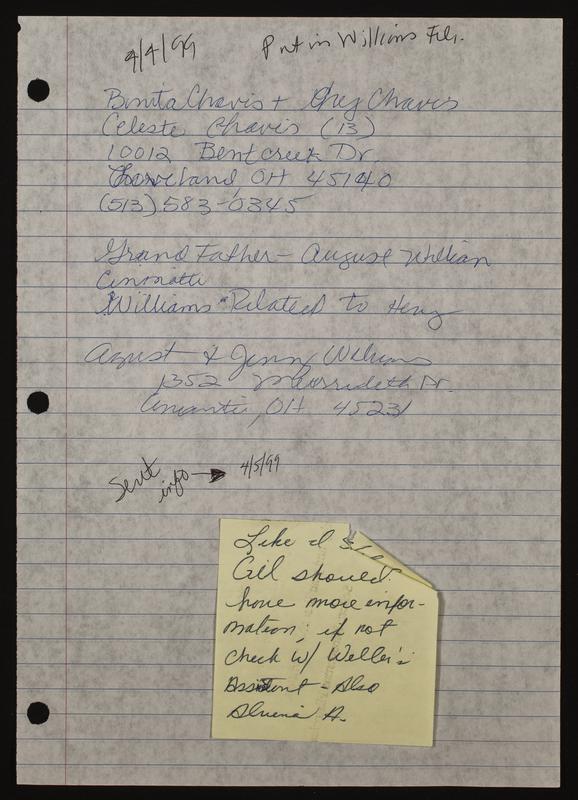 4/4/99 Put in Williams File.
Benita Chavis + Greg Chavis
Celeste Chavis (13)
10012 Bentcreek Dr.
Loveland, OH 45140
(513) 583-0345
Grand Father - August William
Cincinatti
Williams "Related to Henry
August & Jenny Williams
1352 Dr.
OH 45231
Sent
info → 4/5/99
Like I
Call should
have more infor-
mation, if not
check w/ Weller's
Assistant - Also
A.